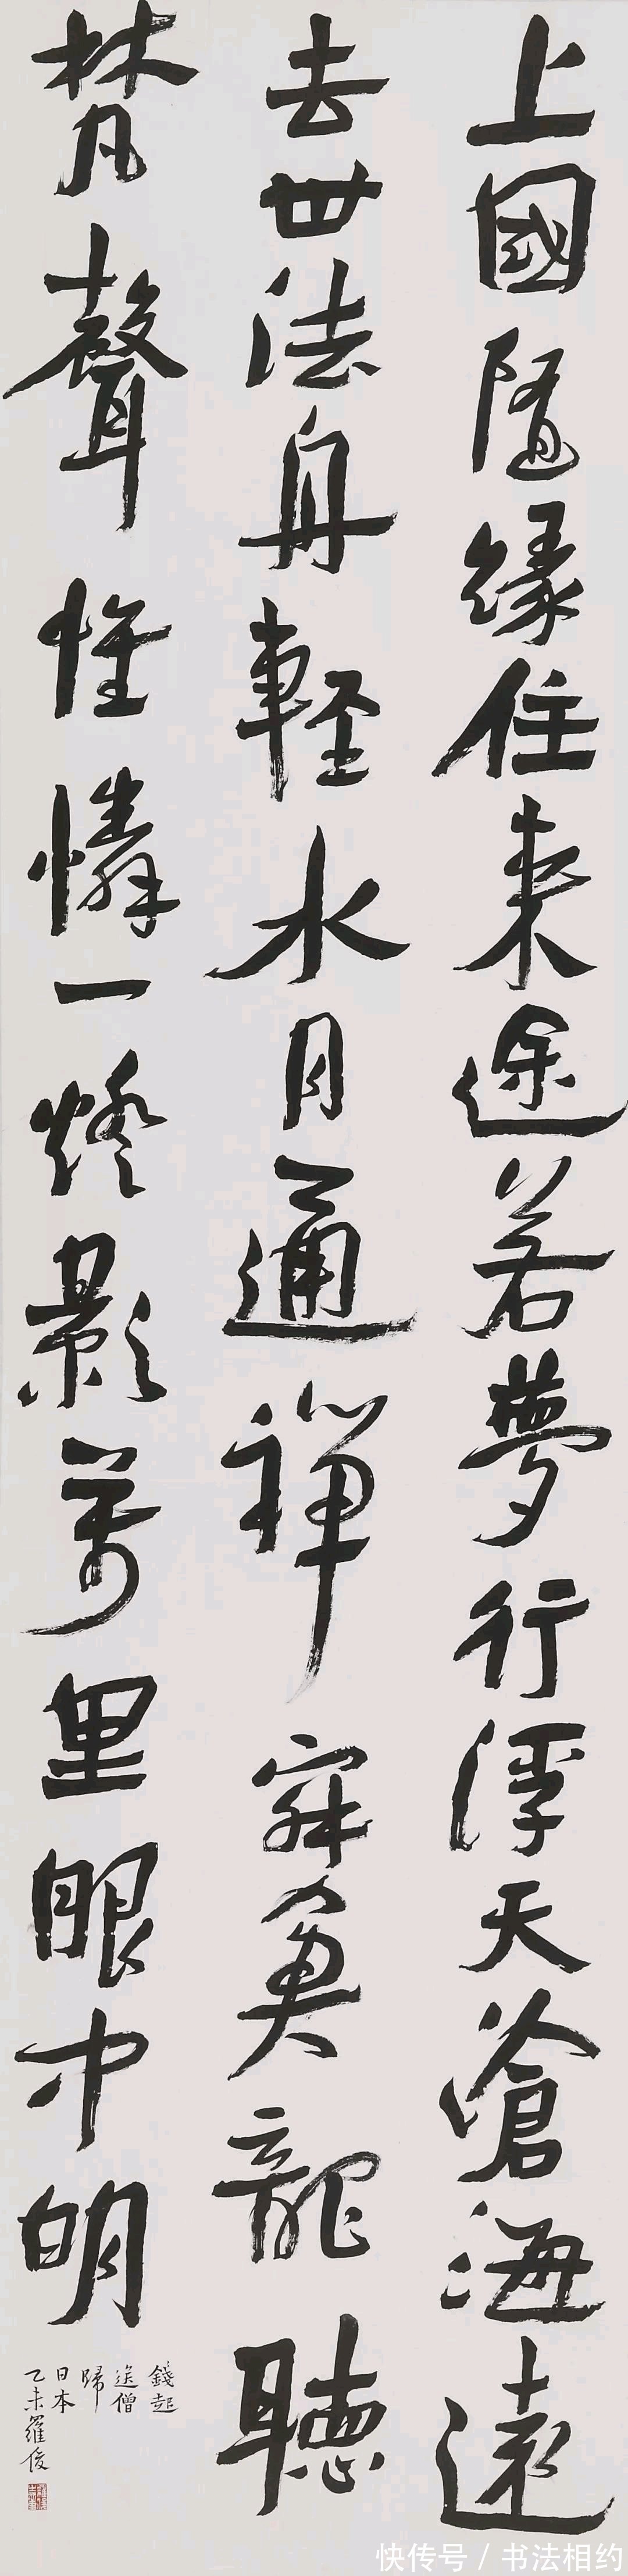 上國隨緣住來途若夢行浮天滄海遠
去世法舟輕水月通禪寂魚龍聽
梵聲惟憐一燈影萬里眼中明
錢起
送僧
歸
日本
乙未羅俊
快传号 / 书法相约